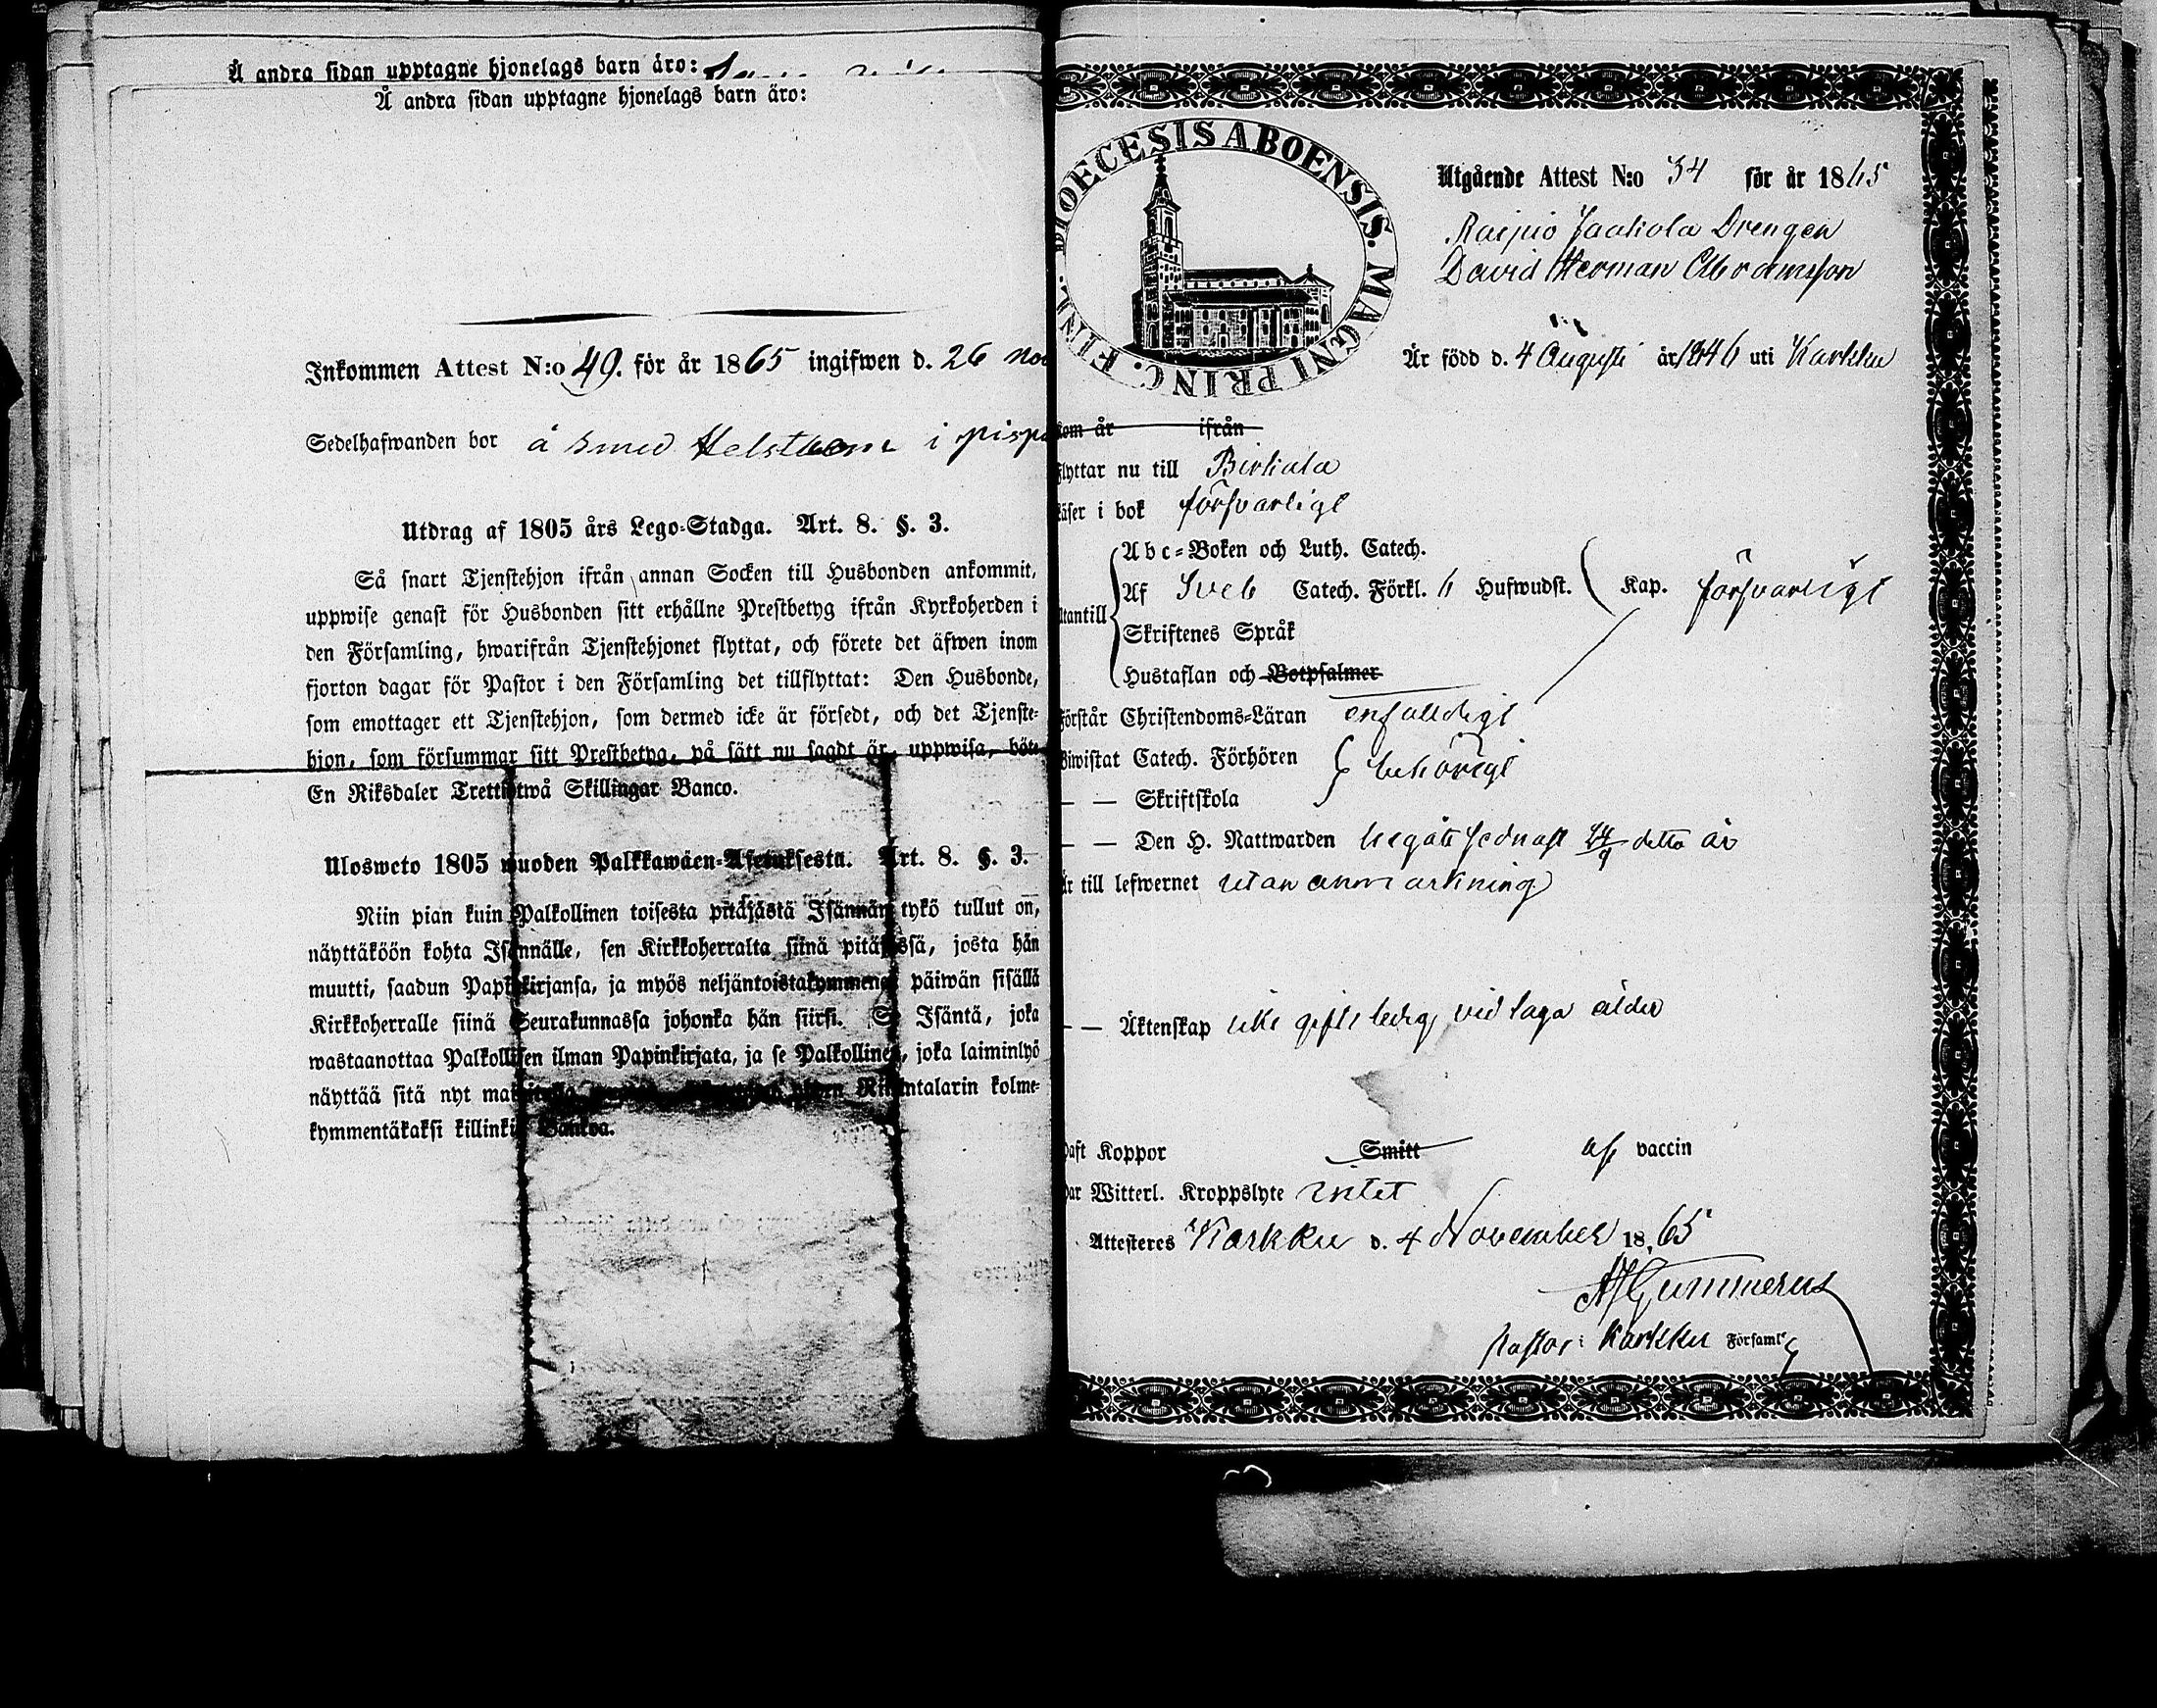 Å andra sidan upptagne hjonelags barn äro:
Å andra sidan upptagne hjonelags barn äro:
Inkommen Attest N:o 49. för år 1865 ingifwen d. 26 Nov
Sedelhafwanden bor å smed i
Utdrag af 1805 års Lego-Stadga. Art. 8. §. 3.
Så snart Tjenstehjon ifrån annan Socken till Husbonden ankommit,
uppwise genast för Husbonden sitt erhållne Prestbetyg ifrån Kyrkoherden i
den Församling, hwarifrån Tjenstehjonet flyttat, och förete det äfwen inom
fjorton dagar för Pastor i den Församling det tillflyttat: Den Husbonde,
som emottager ett Tjenstehjon, som dermed icke är försedt, och det Tjenste-
hjon, som försummar sitt Prestbetyg, på sätt nu sagdt är, uppwisa, böte
En Riksdaler Trettiotwå Skillingar Banco.
Ulosweto 1805 wuoden Palkkawäen-Asetuksesta. Art. 8. §. 3.
Niin pian kuin Palkollinen toisesta pitäjästä Isännän tykö tullut on,
näyttäköön kohta Isännälle, sen Kirkkoherralta siinä pitäjässä, josta hän
muutti, saadun Papinkirjansa, ja myös neljäntoistakymmenen päiwän sisällä
Kirkkoherralle siinä Seurakunnassa johonka hän siirsi. Se Isäntä, joka
wastaanottaa Palkollisen ilman Papinkirjata, ja se Palkollinen, joka laiminlyö
näyttää sitä nyt Riksintalarin kolme-
kymmentäkaksi killinkiä Bankoa.
DIOECESIS ABOENSIS. MAGNI PRINC. FINL.
Utgående Attest N:o 34 för år 1865
Raipio Jaakola Drengen
David Herman Abramsson
Är född d. 4 Augusti år 1846 uti Karkku
kom år ifrån
Flyttar nu till Birkala
Läser i bok försvarligt
Abc-Boken och Luth. Catech.
Af Sveb Catech. Förkl. 6 Hufwudst. Kap. försvarligt
Utantill
Skriftenes Språk
Hustaflan och Botpsalmer
Förstår Christendoms-Läran enfalldigt
Biwistat Catech. Förhören behörigt
— — Skriftskola
— — Den H. Nattwarden begått sednast 24/9 detta år
Är till lefwernet utan anmärkning
— — Äktenskap icke gift ledig vid laga ålder
Haft Koppor Smitt af vaccin
Har Witterl. Kroppslyte intet
Attesteres Karkku d. 4 November 1865
Gummerus
Pastor i Karkku Församl